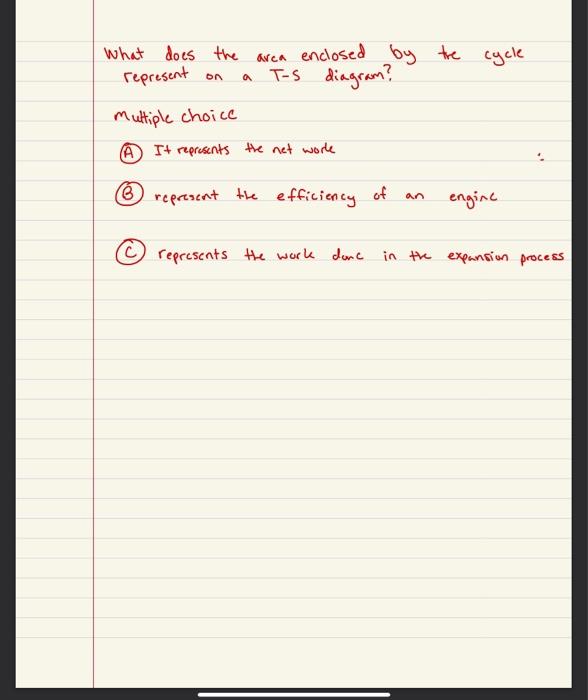 What does the area enclosed by the cycle
represent on a T-S diagram?
Multiple choice
A It represents the net work
B represent the efficiency of an engine
C represents the work done in the expansion process